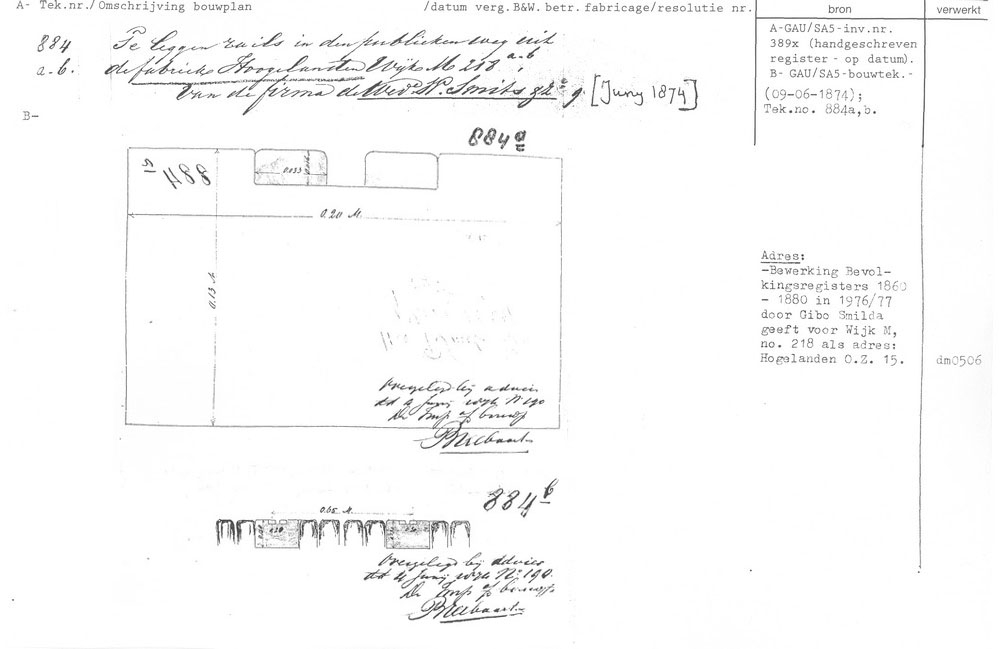 A- Tek.nr./Omschrijving bouwplan /datum verg.B&W. betr. fabricage/resolutie nr. bron verwerkt
884 Te leggen rails in den publieken weg uit
a.b. de fabriek Hoogelanden Wijk M 218 a.b
van de firma de Wed. W. Smits & [Juny 1874]
B-
A-GAU/SA5-inv.nr.
389x (handgeschreven
register - op datum).
B- GAU/SA5-bouwtek.-
(09-06-1874);
Tek.no. 884a,b.
884 a
884 a
0.033
0.20 M.
0.13 M
Adres:
-Bewerking Bevol-
kingsregisters 1860
- 1880 in 1976/77
door Gibo Smilda
geeft voor Wijk M,
no. 218 als adres:
Hogelanden O.Z. 15.
dm0506
Overgelegd bij advies
dd 9 Junij 1874 No 190
De Insp of bouwgn
884 b
0.65 M.
Overgelegd bij advies
dd 9 Junij 1874 No 190.
De Insp of bouwgn